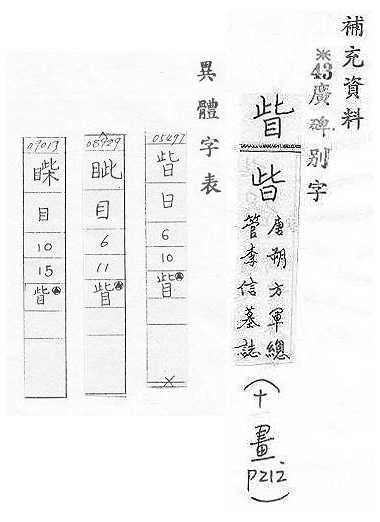 補充資料
※43廣碑別字
眥
唐朔方軍總
管李信墓誌
(十畫
P212)
異體字表
05497
日
6
10
眥
眦
目
6
11
眥
09013
目
10
15
眥